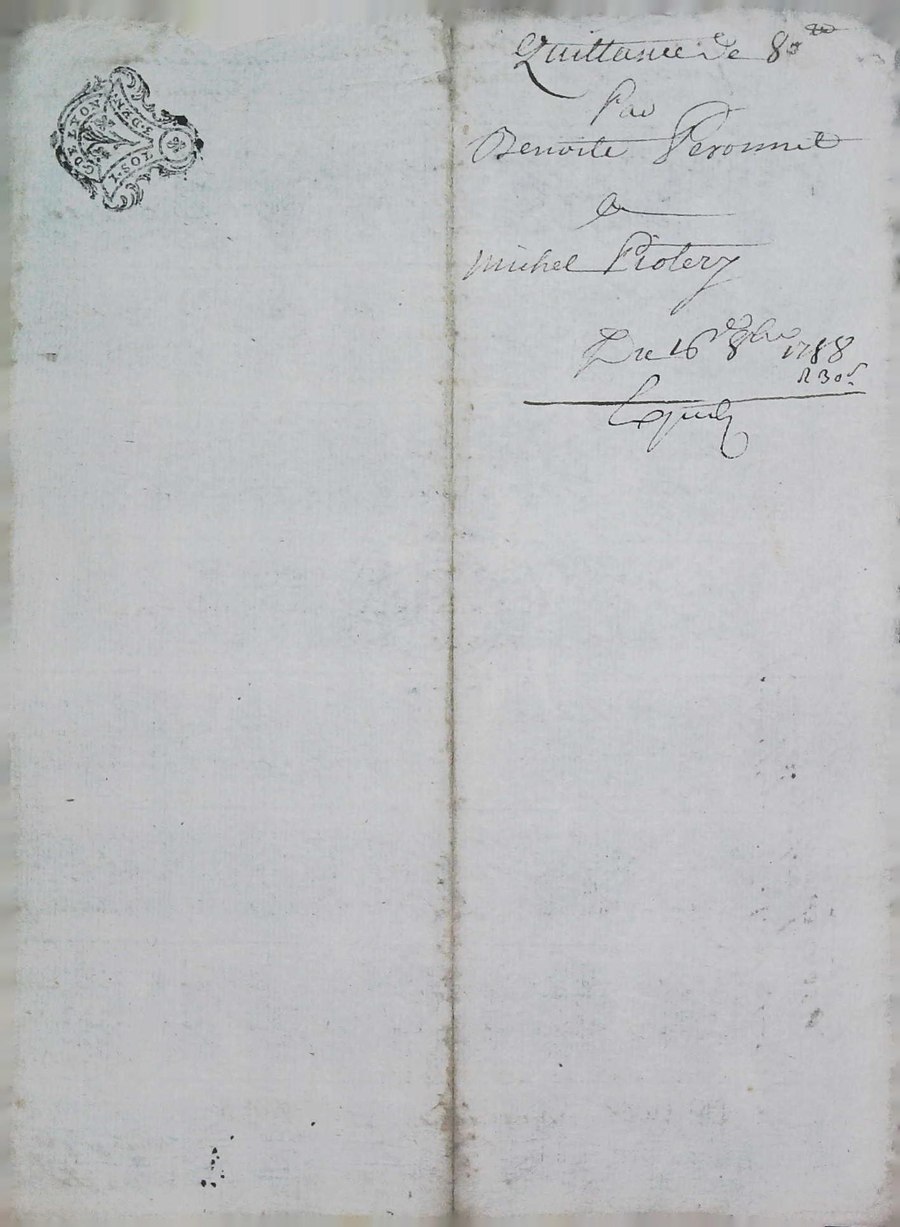 G. DE LYON
1. SOL
8. DEN
Quittance de 80 ₶
Par
Benoite Peronnet
a
Michel Piolery
Du 16 8bre 1788
R 30 s